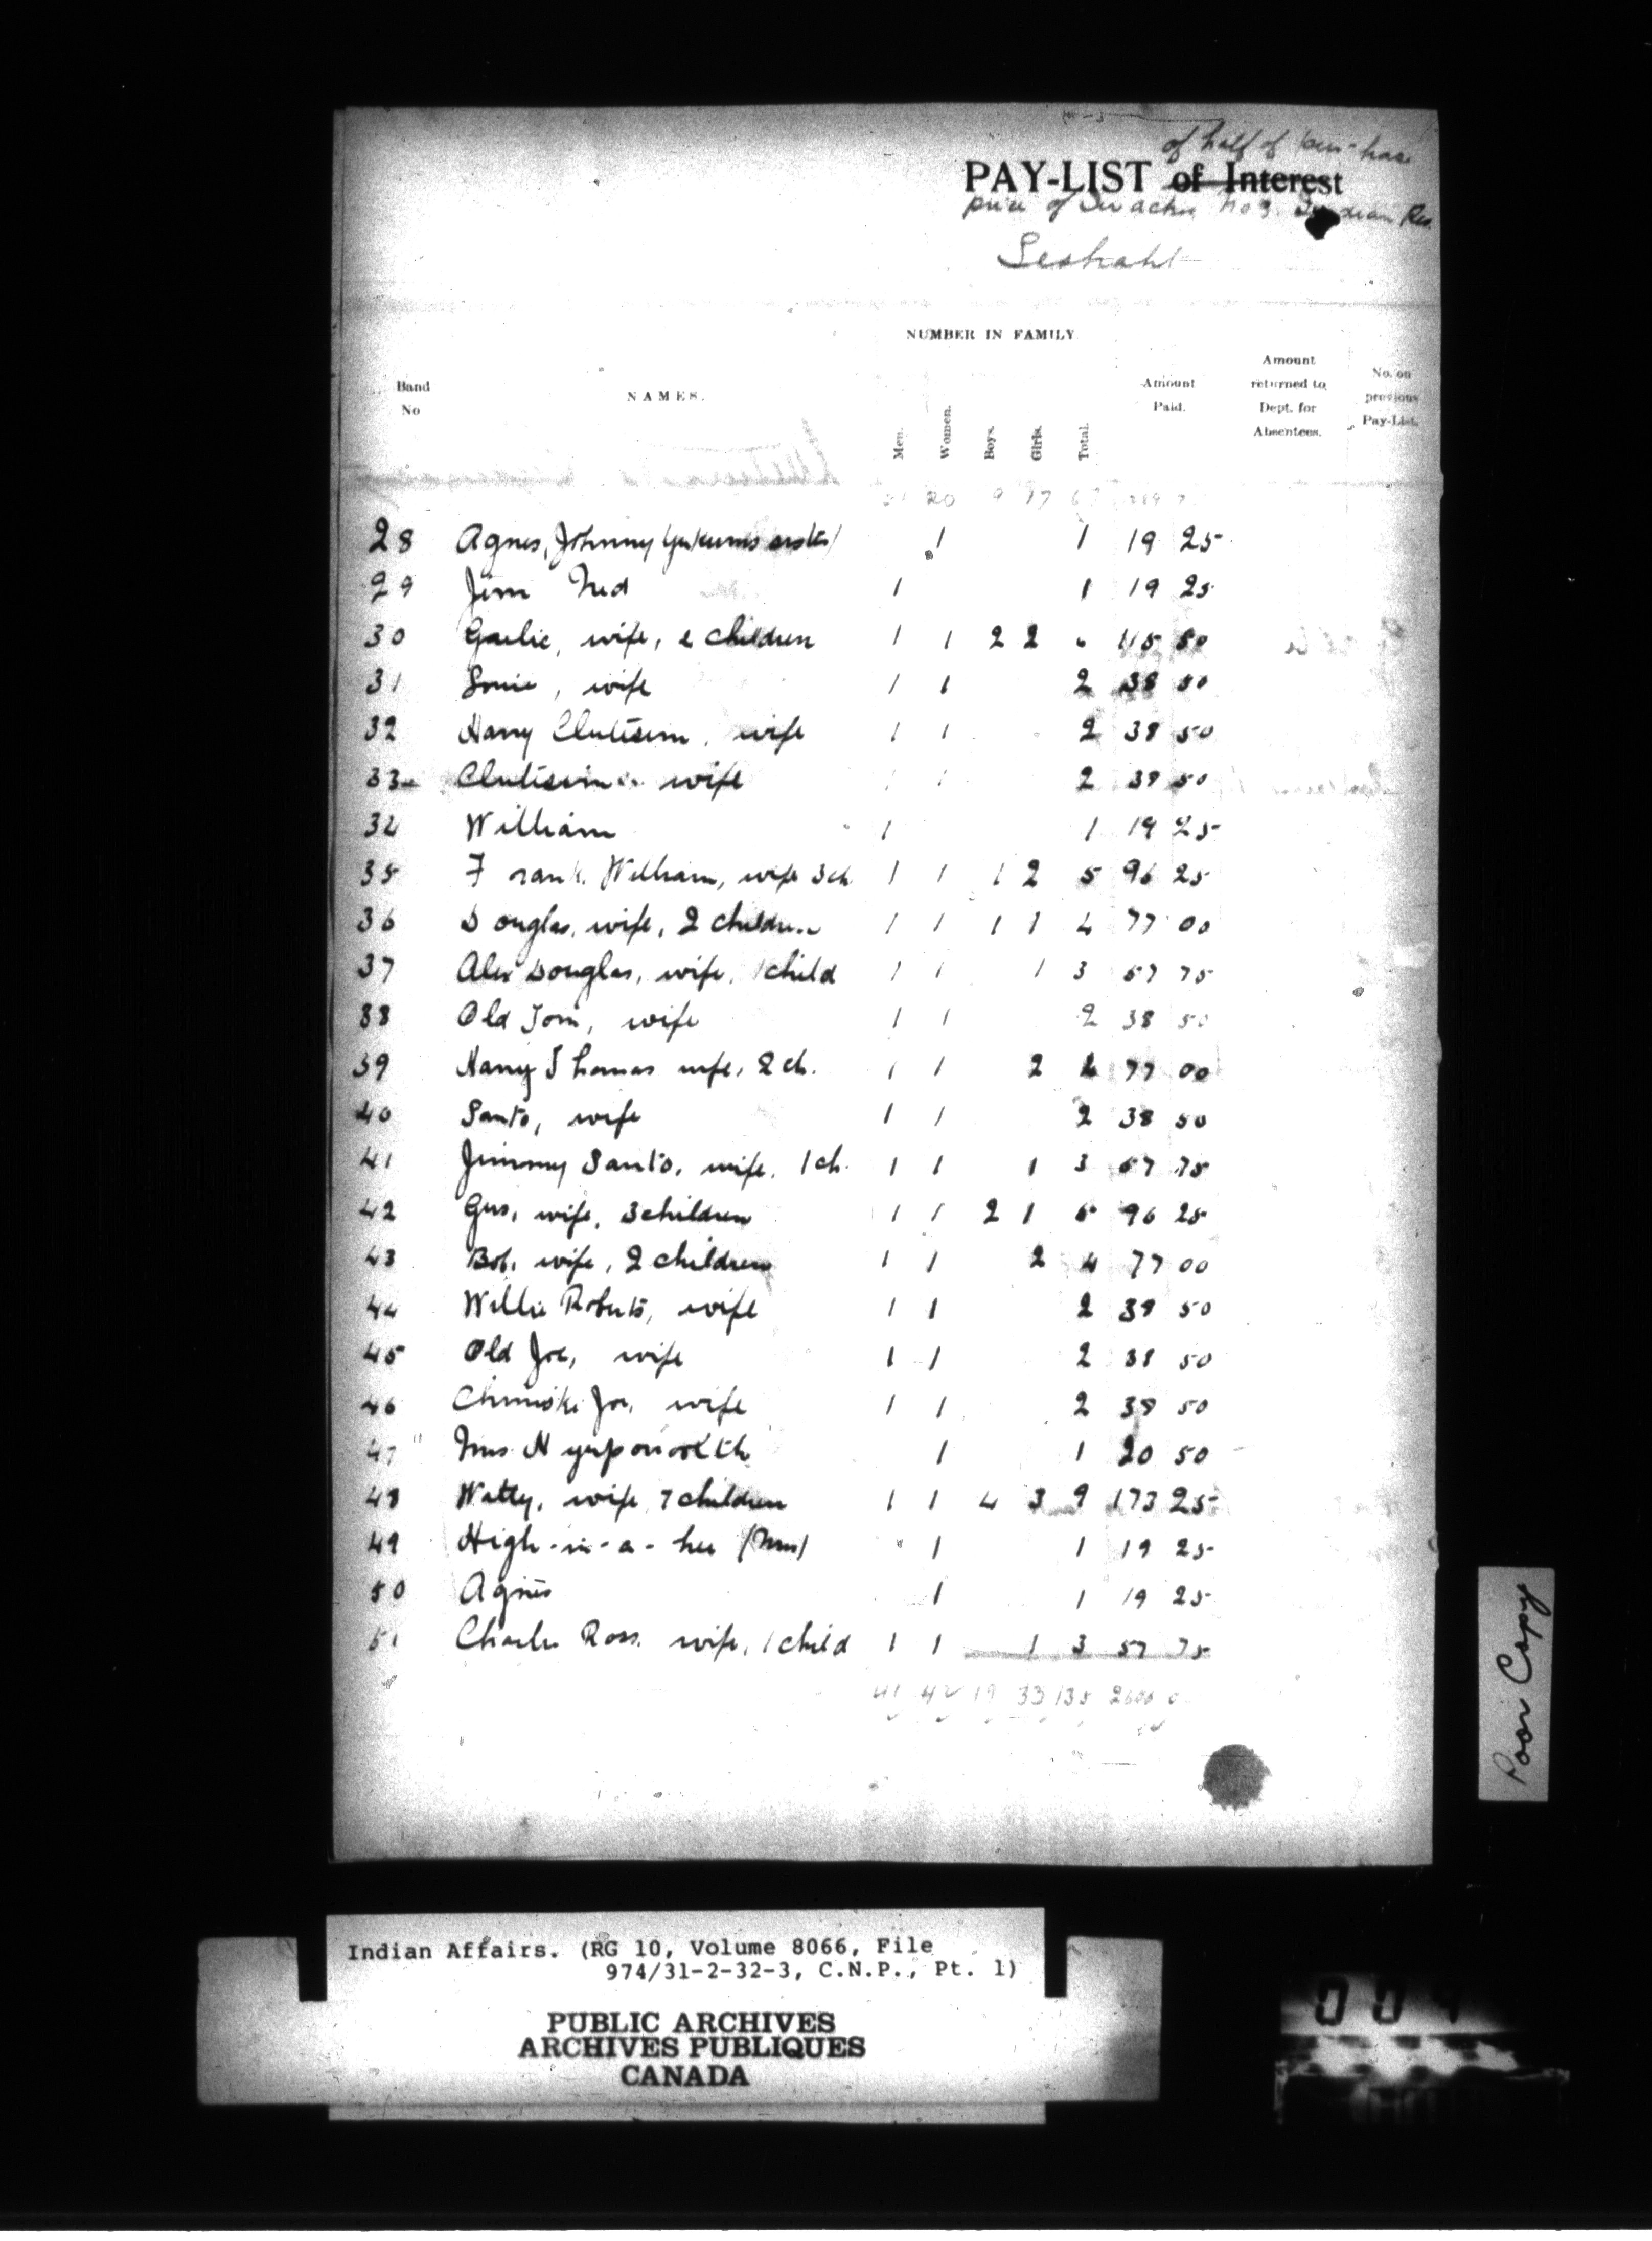 of half of purchase
PAY-LIST of Interest
price of No 3. Indian Res.
Seshaht
NUMBER IN FAMILY
Band No
NAMES.
Men.
Women.
Boys.
Girls.
Total.
Amount Paid.
Amount returned to Dept. for Absentees.
No. on previous Pay-List.
20 9 17
28 Agnes, Johnny 1 1 19 25
29 Jim Ned 1 1 19 25
30 wife, children 1 1 2 2 6 115 50
31 wife 1 1 2 38 50
32 Harry Clutesim, wife 1 1 2 38 50
33 Clutesim wife 1 1 2 38 50
34 William 1 1 19 25
35 Frank William, wife 3 ch 1 1 1 2 5 96 25
36 Douglas, wife, 2 children 1 1 1 1 4 77 00
37 Alex Douglas, wife, 1 child 1 1 1 3 57 75
38 Old Tom, wife 1 1 2 38 50
39 Harry Thomas wife, 2 ch. 1 1 2 4 77 00
40 Santo, wife 1 1 2 38 50
41 Jimmy Santo, wife, 1 ch. 1 1 1 3 57 75
42 Gus, wife, 3 children 1 1 2 1 5 96 25
43 Bob, wife, 2 children 1 1 2 4 77 00
44 Willie Roberts, wife 1 1 2 38 50
45 Old Joe, wife 1 1 2 38 50
46 Joe, wife 1 1 2 38 50
47 Mrs 1 1 20 50
48 Watty, wife 7 children 1 1 4 3 9 173 25
49 High-in-a-hee (Mrs) 1 1 19 25
50 Agnes 1 1 19 25
51 Charlie Ross, wife, 1 child 1 1 1 3 57 75
41 42 19 33 135 2600
Poor Copy
Indian Affairs. (RG 10, Volume 8066, File
974/31-2-32-3, C.N.P., Pt. 1)
PUBLIC ARCHIVES
ARCHIVES PUBLIQUES
CANADA